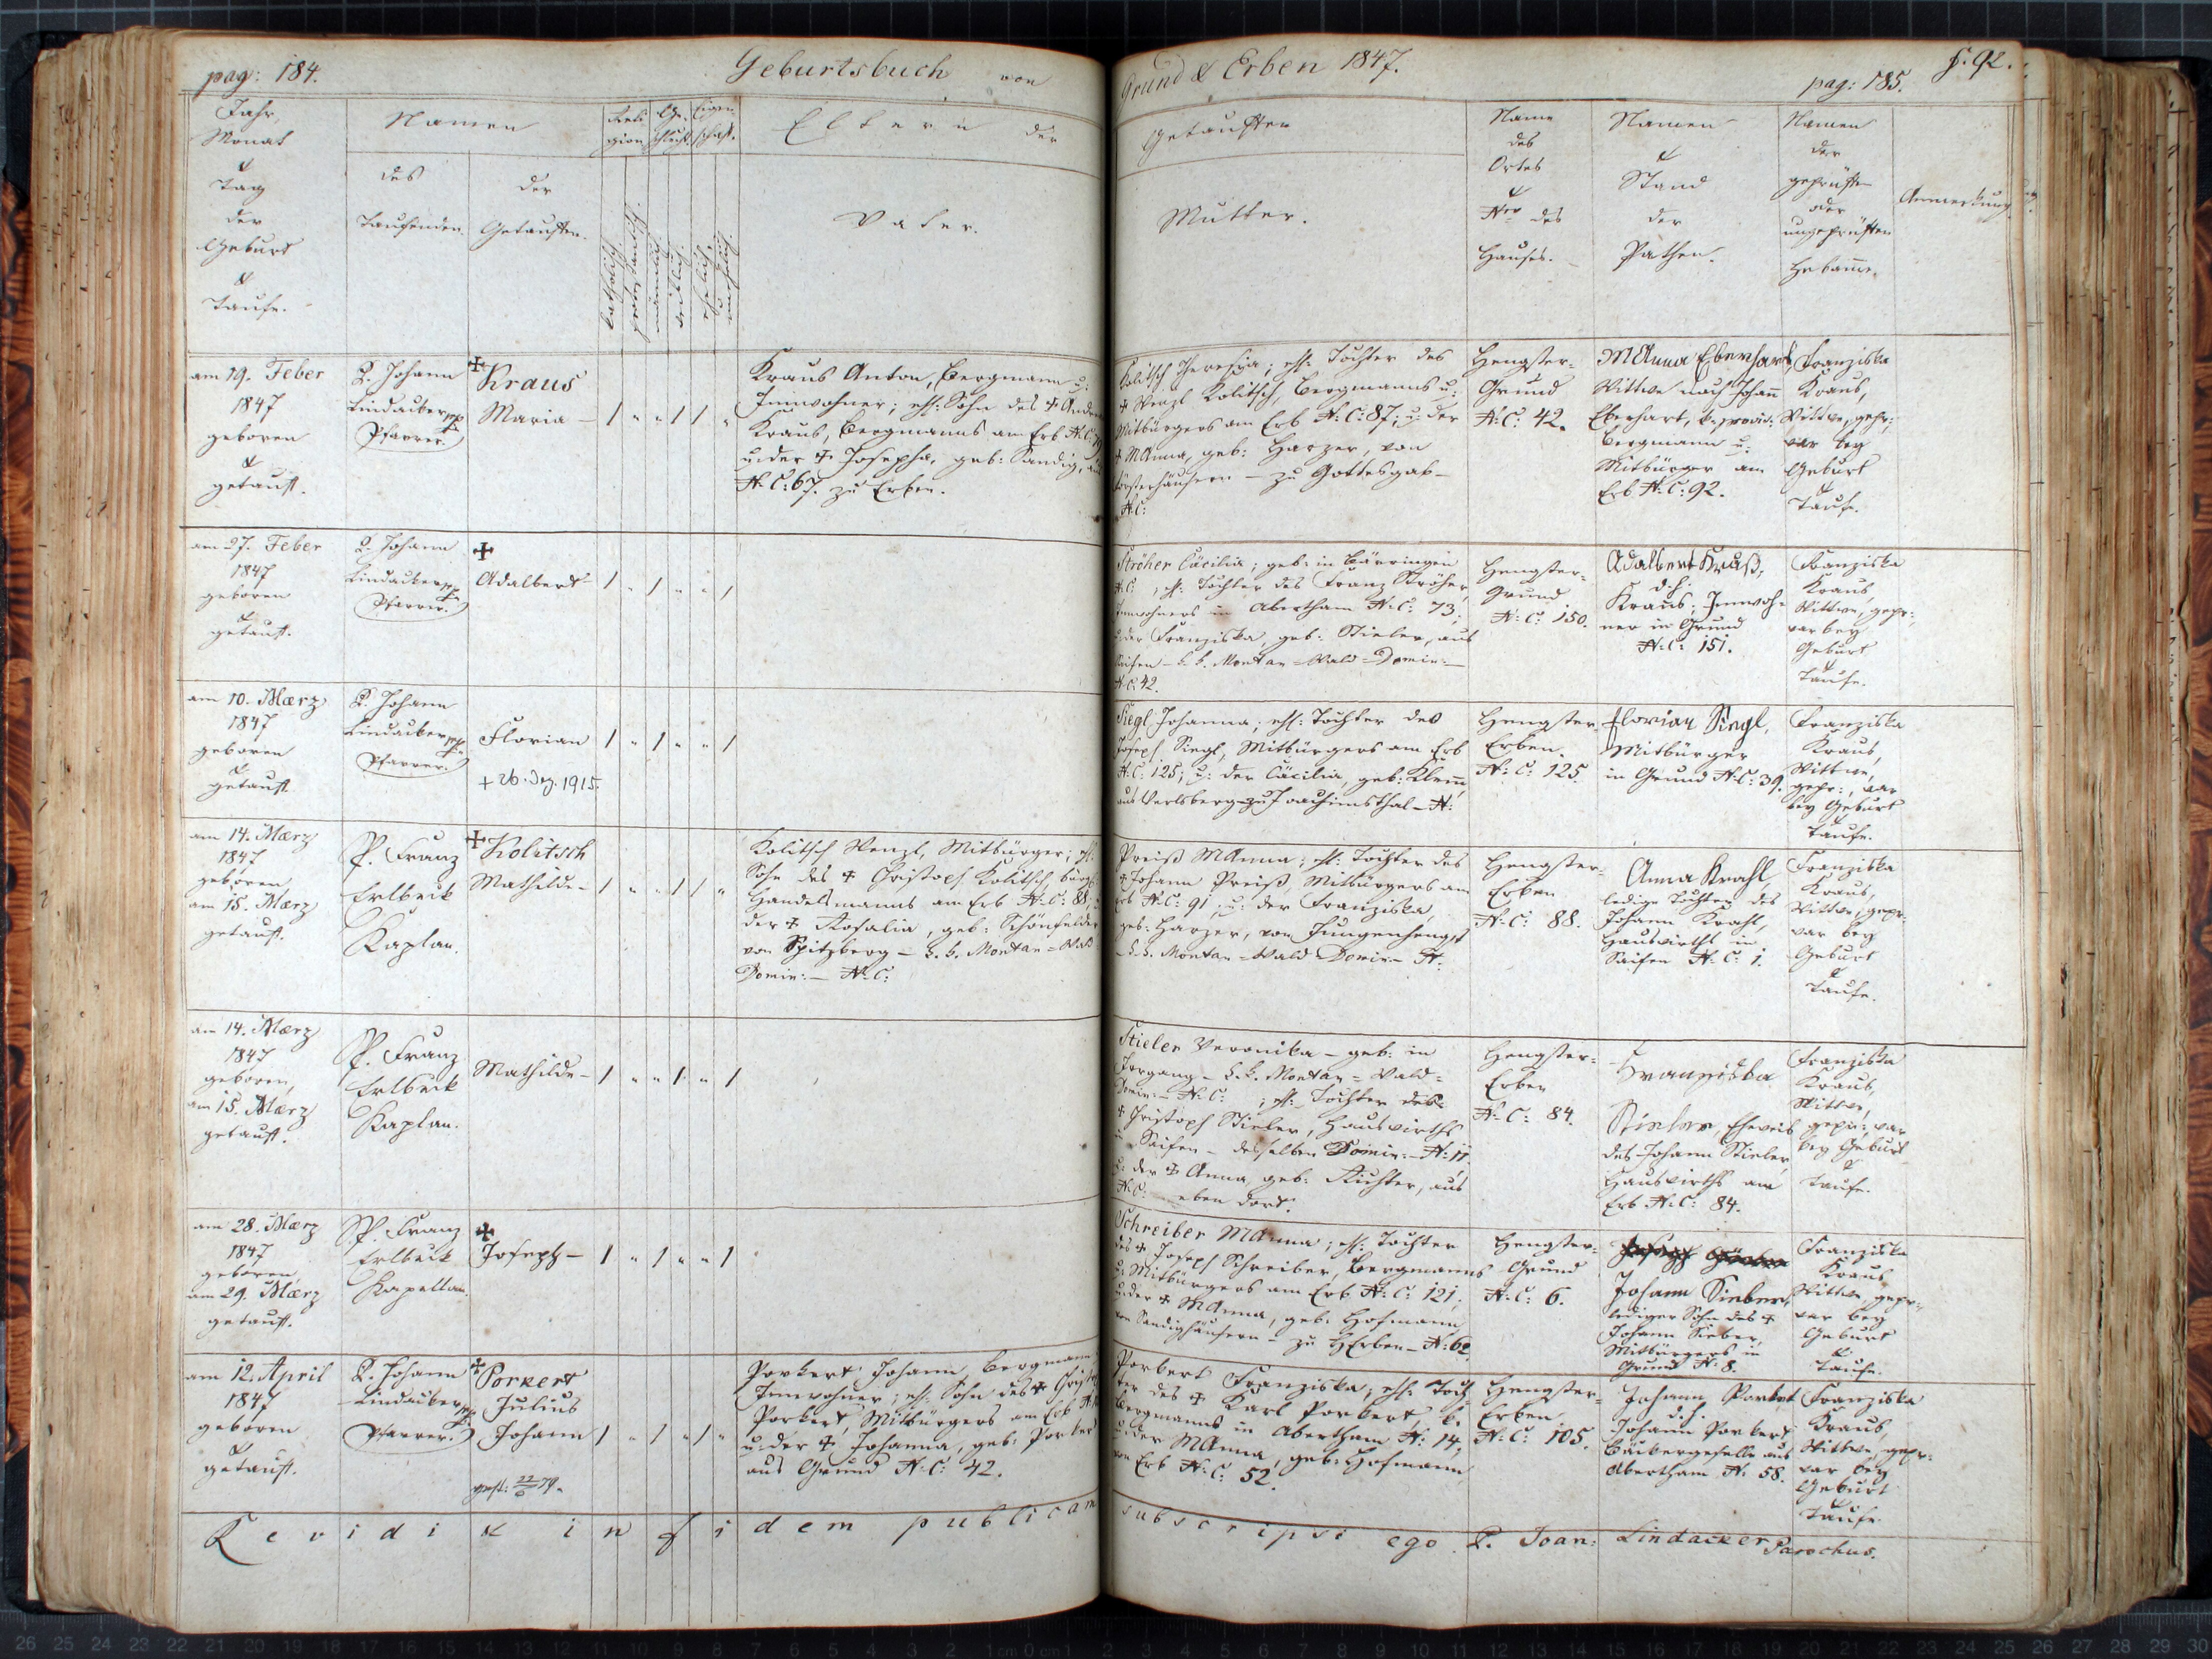 pag: 184.
Geburtsbuch von
Grund & Erben 1847.
pag: 185.
f. 92.
Jahr,
Monat
&
Tag
der
Geburt
&
Taufe.
Namen
des
Taufenden.
der
Getauften.
Religion
Geschlecht.
Eigenschaft.
katholisch.
protestantisch.
männlich.
weiblich.
ehelich.
unehelich.
Eltern der
Vater.
Getauften
Mutter.
Name
des
Ortes
&
Nro des
Hauses.
Namen
&
Stand
der
Pathen.
Namen
der
geprüften
oder
ungeprüften
Hebamme.
Anmerkung.
am 19. Feber
1847
geboren
&
getauft.
P. Johann
Lindacker
Pfarrer.
Kraus
Maria - 1 " " 1 1 "
Kraus Anton, Bergmann u:
Innwohner; ehl: Sohn des +
Kraus, Bergmanns am Erb N:C:
u: der + Josepha, geb: Sandig,
N:C: 67. zu Erben.
Kolitsch Theresia; ehl: Tochter des
+ Wenzl Kolitsch, Bergmanns u:
Mitbürgers am Erb N:C: 87; u: der
+ MAnna, geb: Harzer, von
Försterhäusern - zu Gottesgab -
N:C:
Hengster-
Grund
N:C: 42.
MAnna Eberhart,
Wittwe nach Johann
Eberhart, k. provis:
Bergmann u:
Mitbürger am
Erb N:C: 92.
Franziska
Kraus,
Wittwe, gepr:,
war bey
Geburt
&
Taufe.
am 27. Feber
1847
geboren
&
getauft.
P. Johann
Lindacker
Pfarrer.
Adalbert - 1 " 1 " " 1
Ströher Cäcilia; geb: in Bärringen
N:C: ; ehl: Tochter des Franz Ströher,
Innwohners in Abertham N:C: 73;
u: der Franziska, geb: Stieler, aus
Saifen - k. k. Montan-Wald-Domin: -
N:C: 42.
Hengster-
Grund
N:C: 150.
Adalbert Kraus,
d. h.
Kraus, Innwoh-
ner in Grund
N:C: 151.
Franziska
Kraus,
Wittwe, gepr:,
war bey
Geburt
&
Taufe.
am 10. Mærz
1847
geboren
&
getauft.
P. Johann
Lindacker
Pfarrer.
Florian 1 " 1 " " 1
+ 26. Dez. 1915.
Siegl Johanna; ehl: Tochter des
Joseph Siegl, Mitbürgers am Erb
N:C: 125; u: der Cäcilia, geb: Klem,
aus Werlsberg - zu Joachimsthal - N:
Hengster-
Erben
N:C: 125.
Florian Siegl,
Mitbürger
in Grund N:C: 39.
Franziska
Kraus,
Wittwe,
gepr:, war
bey Geburt
&
Taufe.
am 14. Mærz
1847
geboren
am 15. Mærz
getauft.
P. Franz
Erlbeck
Kaplan.
Kolitsch
Mathilde - 1 " " 1 1 "
Kolitsch Wenzl, Mitbürger; ehl:
Sohn des + Christoph Kolitsch, bürgl:
Handelsmanns am Erb N:C: 88, u:
der + Rosalia, geb: Schönfelder
von Spitzberg - k. k. Montan-Wald-
Domin: - N:C:
Preiß MAnna; ehl: Tochter des
+ Johann Preiß, Mitbürgers am
Erb N:C: 91; u: der Franziska,
geb: Harzer, vom Jungenhengst
- k. k. Montan-Wald-Domin: - N:
Hengster-
Erben
N:C: 88.
Anna Krahl,
ledige Tochter des
Johann Krahl,
Hauswirths in
Saifen N:C: 1.
Franziska
Kraus,
Wittwe, gepr:
war bey
Geburt
&
Taufe.
am 14. Mærz
1847
geboren,
am 15. Mærz
getauft.
P. Franz
Erlbeck
Kaplan.
Mathilde - 1 " " 1 " 1
Stieler Veronika - geb: in
Irrgang - k. k. Montan-Wald-
Domin: - N:C: ; ehl: Tochter des
+ Christoph Stieler, Hauswirths
in Saifen - desselben Domin: - N: 11,
u: der + Anna, geb: Richter, aus
N:C: eben dort.
Hengster-
Erben
N:C: 84.
Franziska
Stieler, Eheweib
des Johann Stieler,
Hauswirths am
Erb N:C: 84.
Franziska
Kraus,
Wittwe,
gepr:, war
bey Geburt
&
Taufe.
am 28. Mærz
1847
geboren,
am 29. Mærz
getauft.
P. Franz
Erlbeck
Kapellan.
Joseph - 1 " 1 " " 1
Schreiber MAnna; ehl: Tochter
des + Joseph Schreiber, Bergmanns
u: Mitbürgers am Erb N:C: 121,
u: der + MAnna, geb: Hofmann,
von Sandighäusern - zu HErben - N: 62
Hengster-
Grund
N:C: 6.
Johann Sieber,
lediger Sohn des +
Johann Sieber,
Mitbürgers in
Grund N: 8.
Franziska
Kraus,
Wittwe, gepr:,
war bey
Geburt
&
Taufe.
am 12. April
1847
geboren
&
getauft.
P. Johann
Lindacker
Pfarrer.
Porkert
Julius
Johann 1 " 1 " 1 "
gest: 22/6 79.
Porkert Johann, Bergmann
Innwohner; ehl: Sohn des +
Porkert, Mitbürgers am Erb N:
u: der + Johanna, geb: Porkert
aus Grund N:C: 42.
Porkert Franziska; ehl: Toch-
ter des + Karl Porkert, k.
Bergmanns in Abertham N: 14,
u: der MAnna, geb: Hofmann,
von Erb N:C: 52.
Hengster-
Erben
N:C: 105.
Johann Porkert
d. h.
Johann Porkert
Bäckergeselle aus
Abertham N: 58.
Franziska
Kraus,
Wittwe, gepr:
war bey
Geburt
&
Taufe.
Revidi & in fidem publicam subscripsi ego P. Joan: Lindacker Parochus.